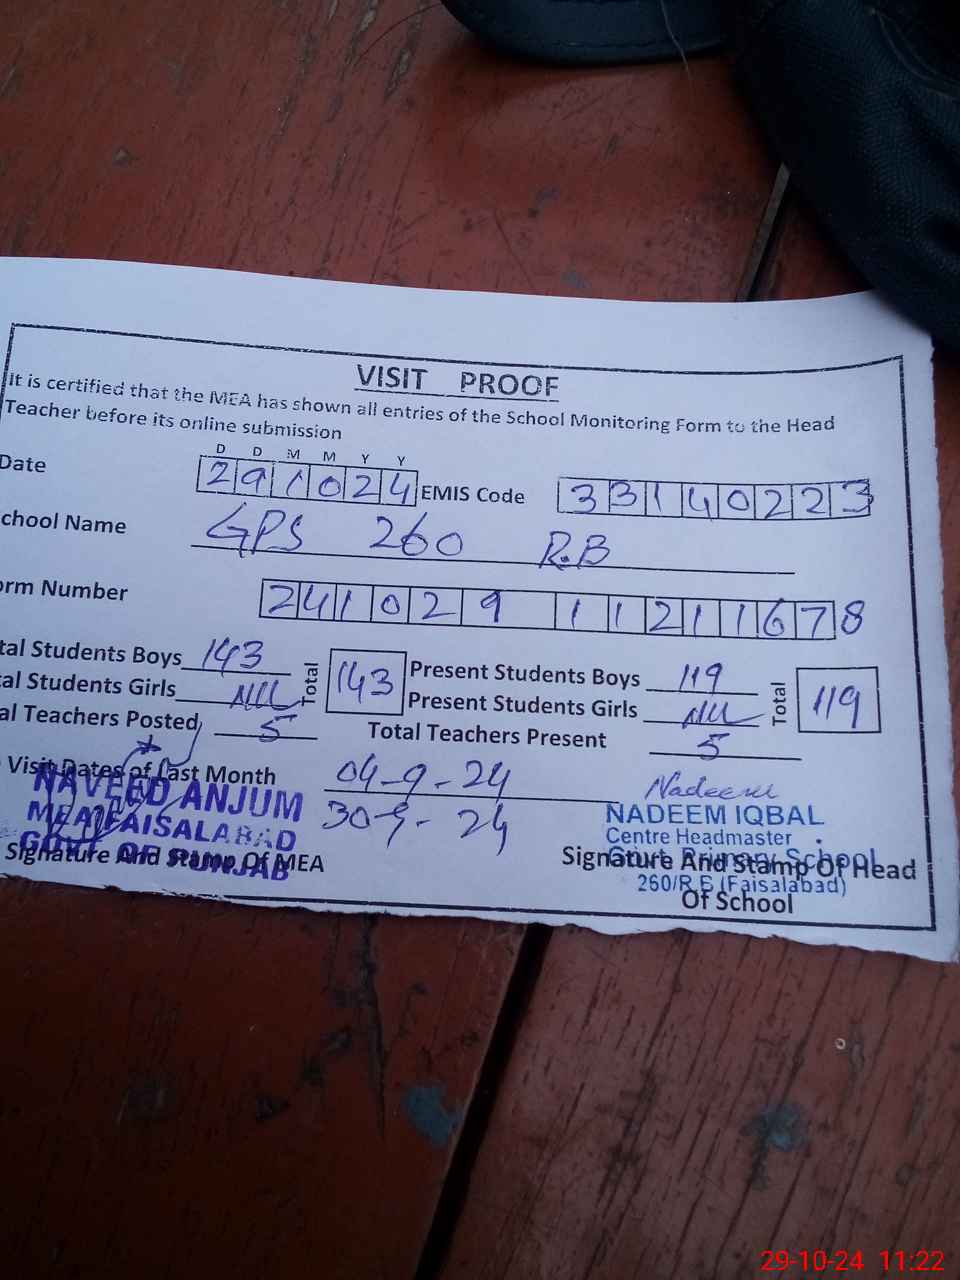 VISIT PROOF
It is certified that the MEA has shown all entries of the School Monitoring Form to the Head
Teacher before its online submission
D D M M Y Y
Date 291024 EMIS Code 33140223
chool Name GPS 260 R.B
orm Number 24102911211678
tal Students Boys 143 Total 143 Present Students Boys 119 Total 119
al Students Girls Nil Present Students Girls Nil
al Teachers Posted 5 Total Teachers Present 5
Visit Dates of Last Month 04-9-24
30-9-24
Nadeem
NAVEED ANJUM
MEA FAISALABAD
GOVT. OF PUNJAB
Signature And Stamp Of MEA
NADEEM IQBAL
Centre Headmaster
Govt. Primary School
260/R.B (Faisalabad)
Signature And Stamp Of Head
Of School
29-10-24 11:22